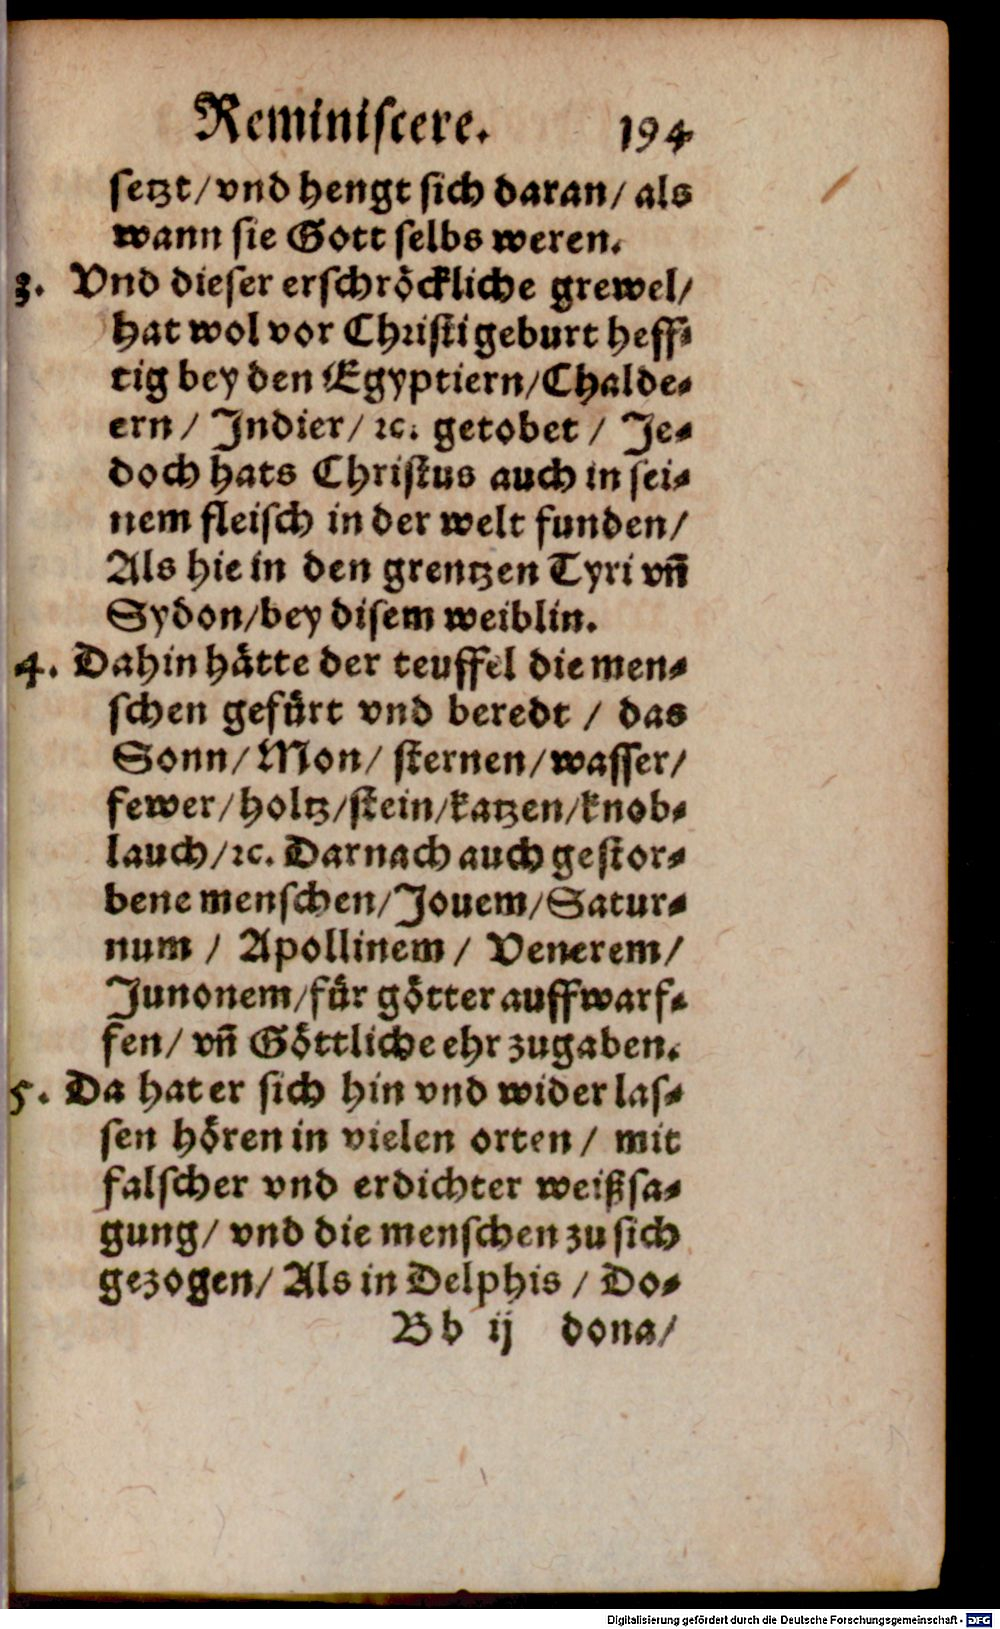 Reminiscere. 194
setzt/vnd hengt sich daran/ als
wann sie Gott selbs weren.
3. Vnd dieser erschröckliche grewel/
hat wol vor Christi geburt heff-
tig bey den Egyptiern/Chalde-
ern/ Indier/ ꝛc. getobet / Je-
doch hats Christus auch in sei-
nem fleisch in der welt funden/
Als hie in den grentzen Tyri vñ
Sydon/bey disem weiblin.
4. Dahin hätte der teuffel die men-
schen gefürt vnd beredt / das
Sonn/ Mon/ sternen/wasser/
fewer/holtz/stein/katzen/knob-
lauch/ꝛc. Darnach auch gestor-
bene menschen/Jouem/Satur-
num / Apollinem / Venerem/
Junonem/für götter auffwarf-
fen/ vñ Göttliche ehr zugaben.
5. Da hat er sich hin vnd wider las-
sen hören in vielen orten/ mit
falscher vnd erdichter weißsa-
gung/ vnd die menschen zu sich
gezogen/ Als in Delphis / Do-
Bb ij dona/
Digitalisierung gefördert durch die Deutsche Forschungsgemeinschaft - DFG